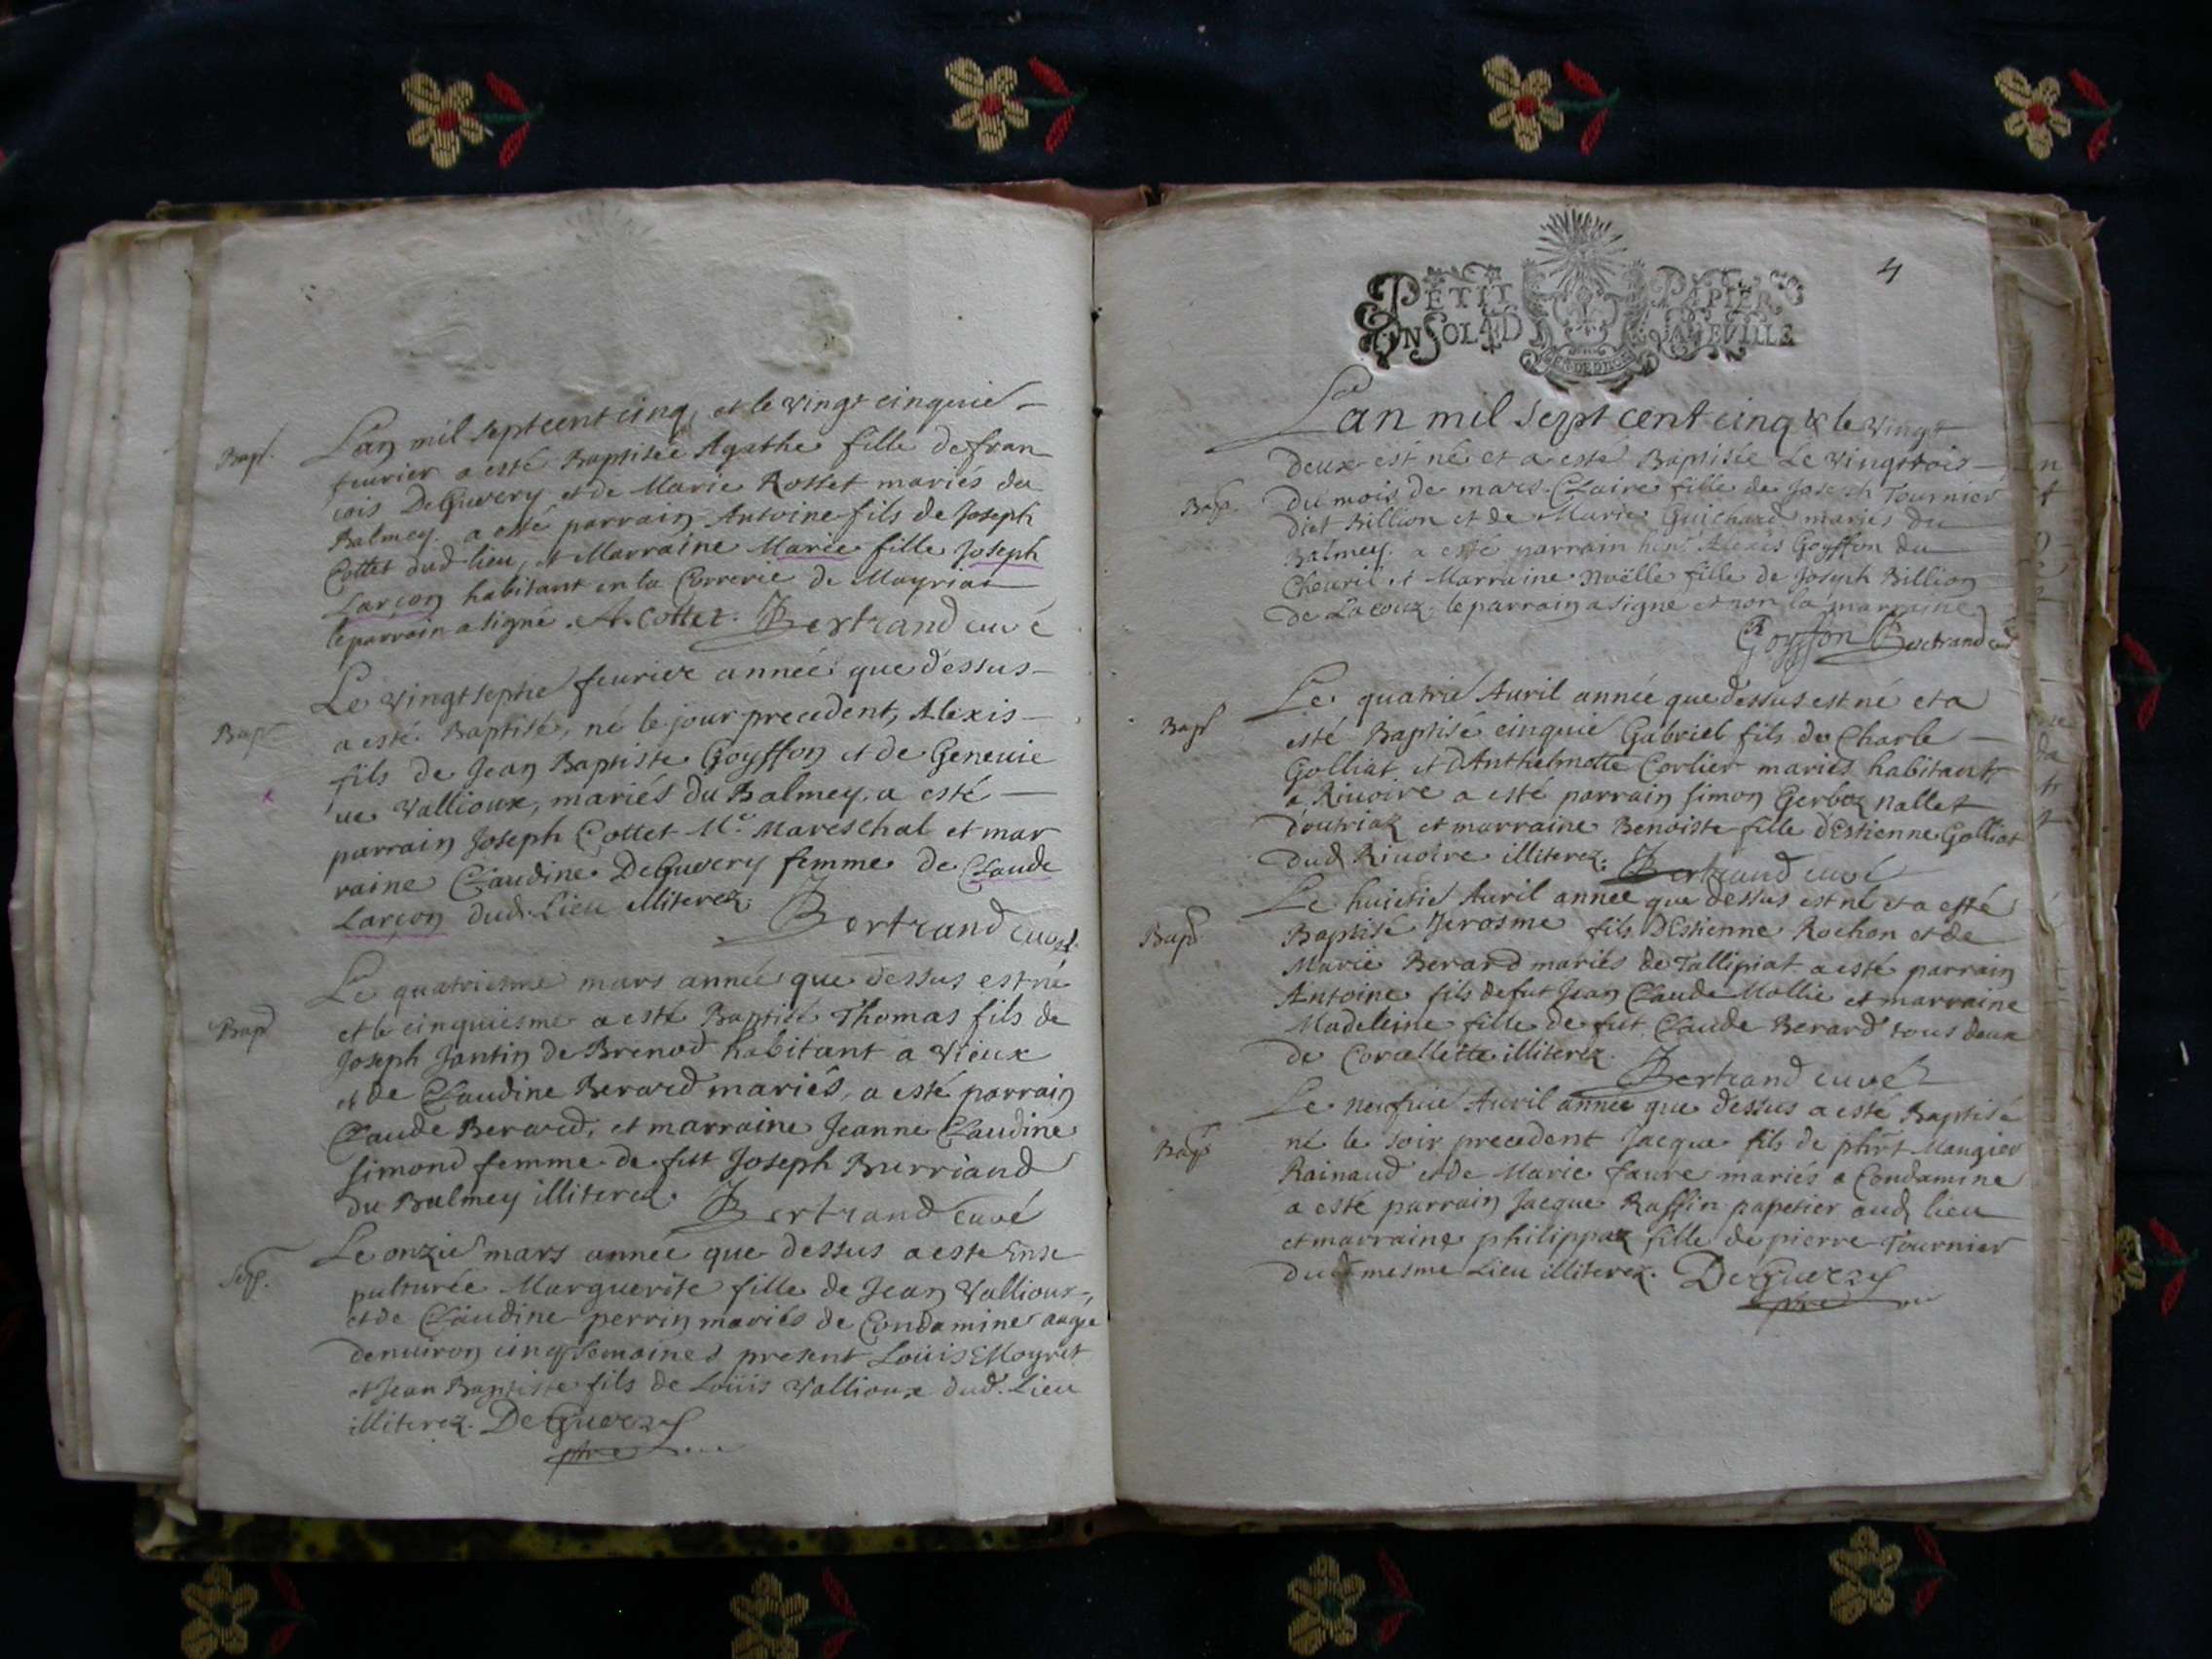 Bapt.
Lan mil sept cent cinq, et le vingt cinquie
feurier a esté Baptisée Agathe fille de fran
cois DeGuvery et de Marie Rosset mariés du
Balmey. a esté parrain Antoine fils de Joseph
Cottet dud lieu, et Marraine Marie fille Joseph
Larcon habitant en la Correrie de Mayriat
le parrain a signé. A. Cottet. Bertrand curé
Bap
Le vingt septie feurier année que dessus
a esté Baptisé, né le jour precedent, Alexis
fils de Jean Baptiste Goyffon et de Geneuie
ue Vallioux, mariés du Balmey. a esté
parrain Joseph Cottet Me. Mareschal et mar
raine Claudine DeGuvery femme de Claude
Larcon dud. Lieu illiterez. Bertrand curé
Bapt
Le quatriesme mars année que dessus est né
et le cinquiesme a esté Baptisé Thomas fils de
Joseph Jantin de Brenod habitant a Vieux
et de Claudine Berard mariés, a esté parrain
Claude Berard, et marraine Jeanne Claudine
Simond femme de fut Joseph Burriand
du Balmey illiterez. Bertrand curé
Sep.
Le onzie mars année que dessus a este Ense
pulturée Marguerite fille de Jean Vallioux,
et de Claudine perrin mariés de Condamine aage
denuiron cinq semaines present Loüis Moyret
et Jean Baptiste fils de Loüis Vallioux dud. Lieu
illiterez. DeGuvery
ptre
4
PETIT PAPIER
UN SOL 4 D LA FEUILLE
Lan mil sept cent cinq & le vingt
deux est né et a esté Baptisée Le vingt trois
Bap.
du mois de mars. Claire fille de Joseph Tournier
dict Billion et de Marie Guichard mariés du
Balmey. a esté parrain Alexis Goyffon du
Cheuril et Marraine Noëlle fille de Joseph Billion
de Lacoux, le parrain a signé et non la marraine
Goyffon Bertrand curé
Bapt
Le quatrie Auril année que dessus est né et a
esté Baptisé cinquie Gabriel fils de Charle
Golliat et d'Anthelmette Corlier mariés habitants
a Riuoire a esté parrain Simon Gerboz Nallet
doutriaz et marraine Benoiste fille d'Estienne Golliat
dud Riuoire illiterez. Bertrand curé
Bapt
Le huictie Auril année que dessus est né et a esté
Baptisé Jerosme fils dEstienne Rochon et de
Marie Berard mariés de Tallipiat a esté parrain
Antoine fils de fut Jean Claude Mollie et marraine
Madeleine fille de fut Claude Berard tous deux
de Corcellette illiterez. Bertrand curé
Bapt
Le neufuie Auril année que dessus a esté Baptisé
né le soir precedent Jacque fils de phirt Maugier
Rainaud et de Marie Faure mariés a Condamine
a esté parrain Jacque Raffin papetier aud lieu
et marraine philippaz fille de pierre Tournier
dud mesme Lieu illiterez. DeGuvery
ptre